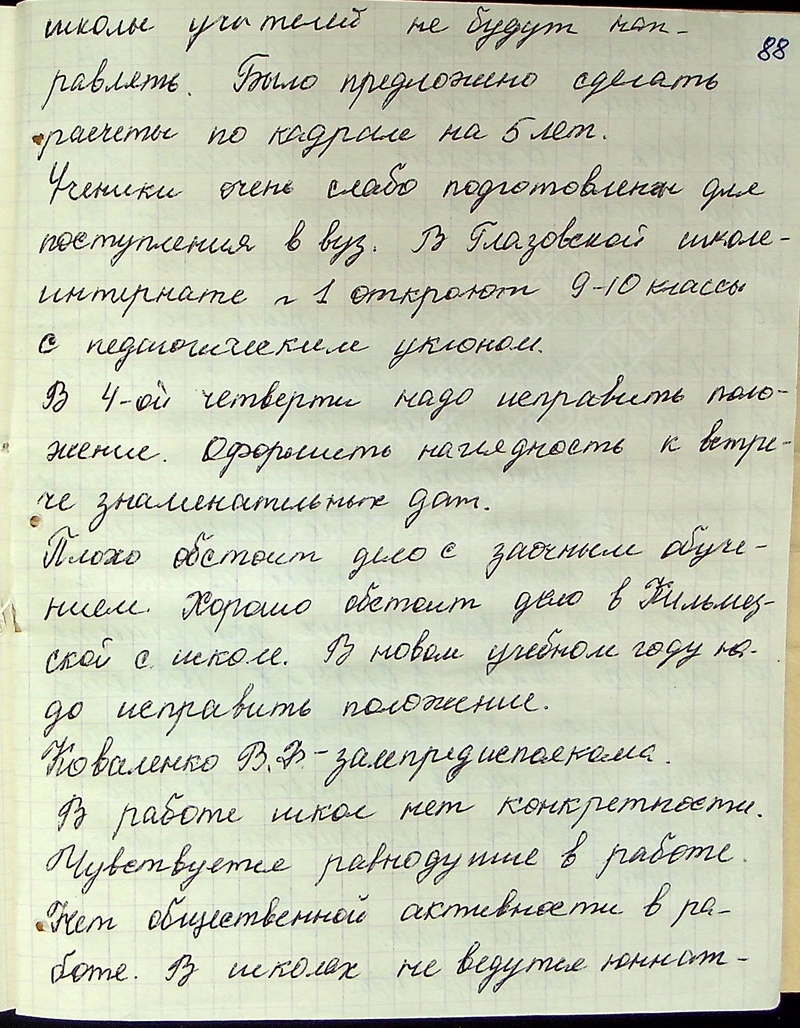 88
школы учителей не будут нап-
равлять. Было предложено сделать
расчеты по кадрам на 5 лет.
Ученики очень слабо подготовлены для
поступления в вуз. В Глазовской школе-
интернате № 1 откроют 9-10 классы
с педагогическим уклоном.
В 4-ой четверти надо исправить поло-
жение. Оформить наглядность к встре-
че знаменательных дат.
Плохо обстоит дело с заочным обуче-
нием. Хорошо обстоит дело в Кильмез-
ской с. школе. В новом учебном году на-
до исправить положение.
Коваленко В.В - зампредисполкома.
В работе школ нет конкретности.
Чувствуется равнодушие в работе.
Нет общественной активности в ра-
боте. В школах не ведутся юннат-